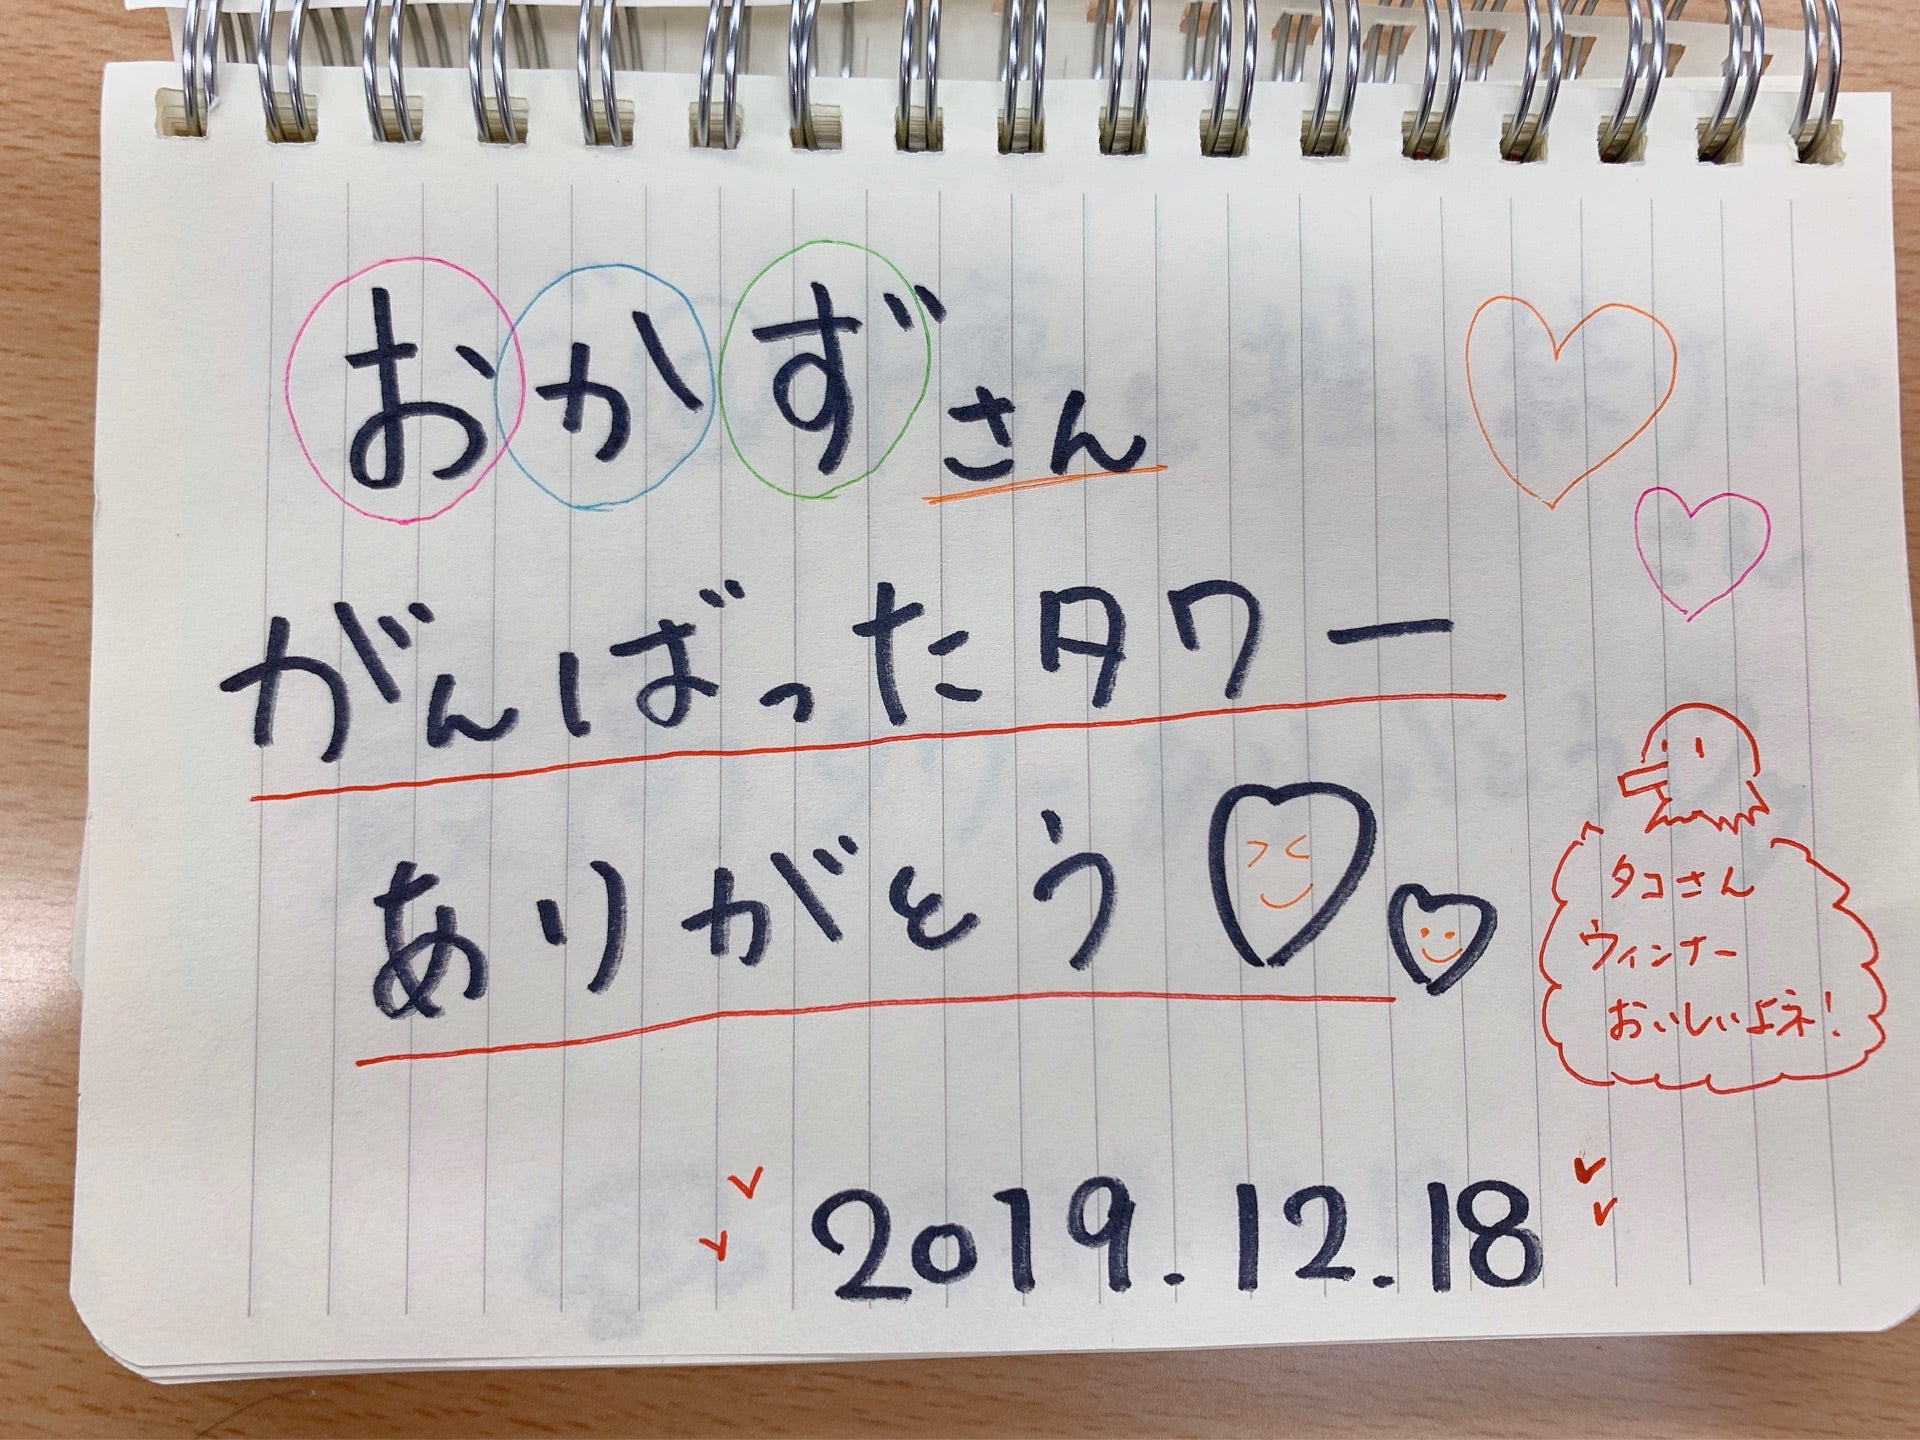 おかずさん
がんばったタワー
ありがとう
タコさん
ウィンナー
おいしいよネ!
2019.12.18